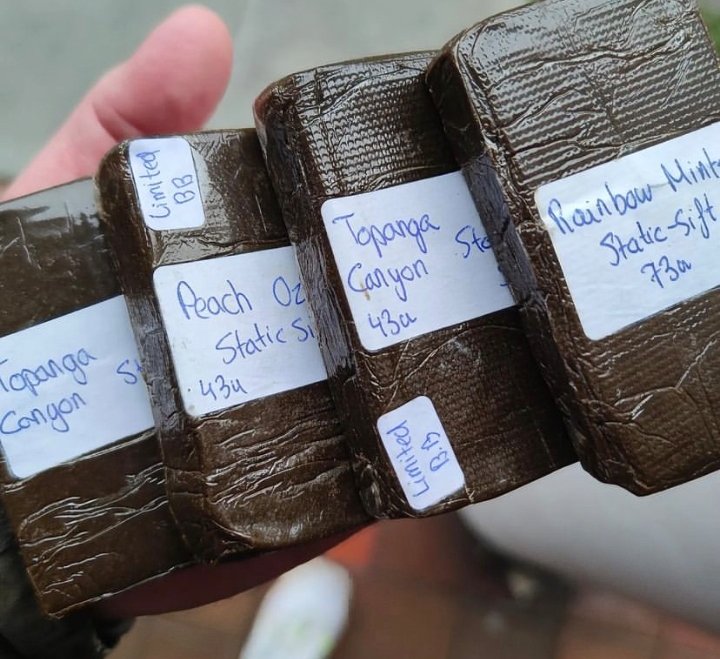 Topanga
Canyon St
Limited
BB
Peach Oz
Static Si
43u
Topanga
Canyon Sta
43u
Limited
B.B
Rainbow Mint
Static-Sift
73u